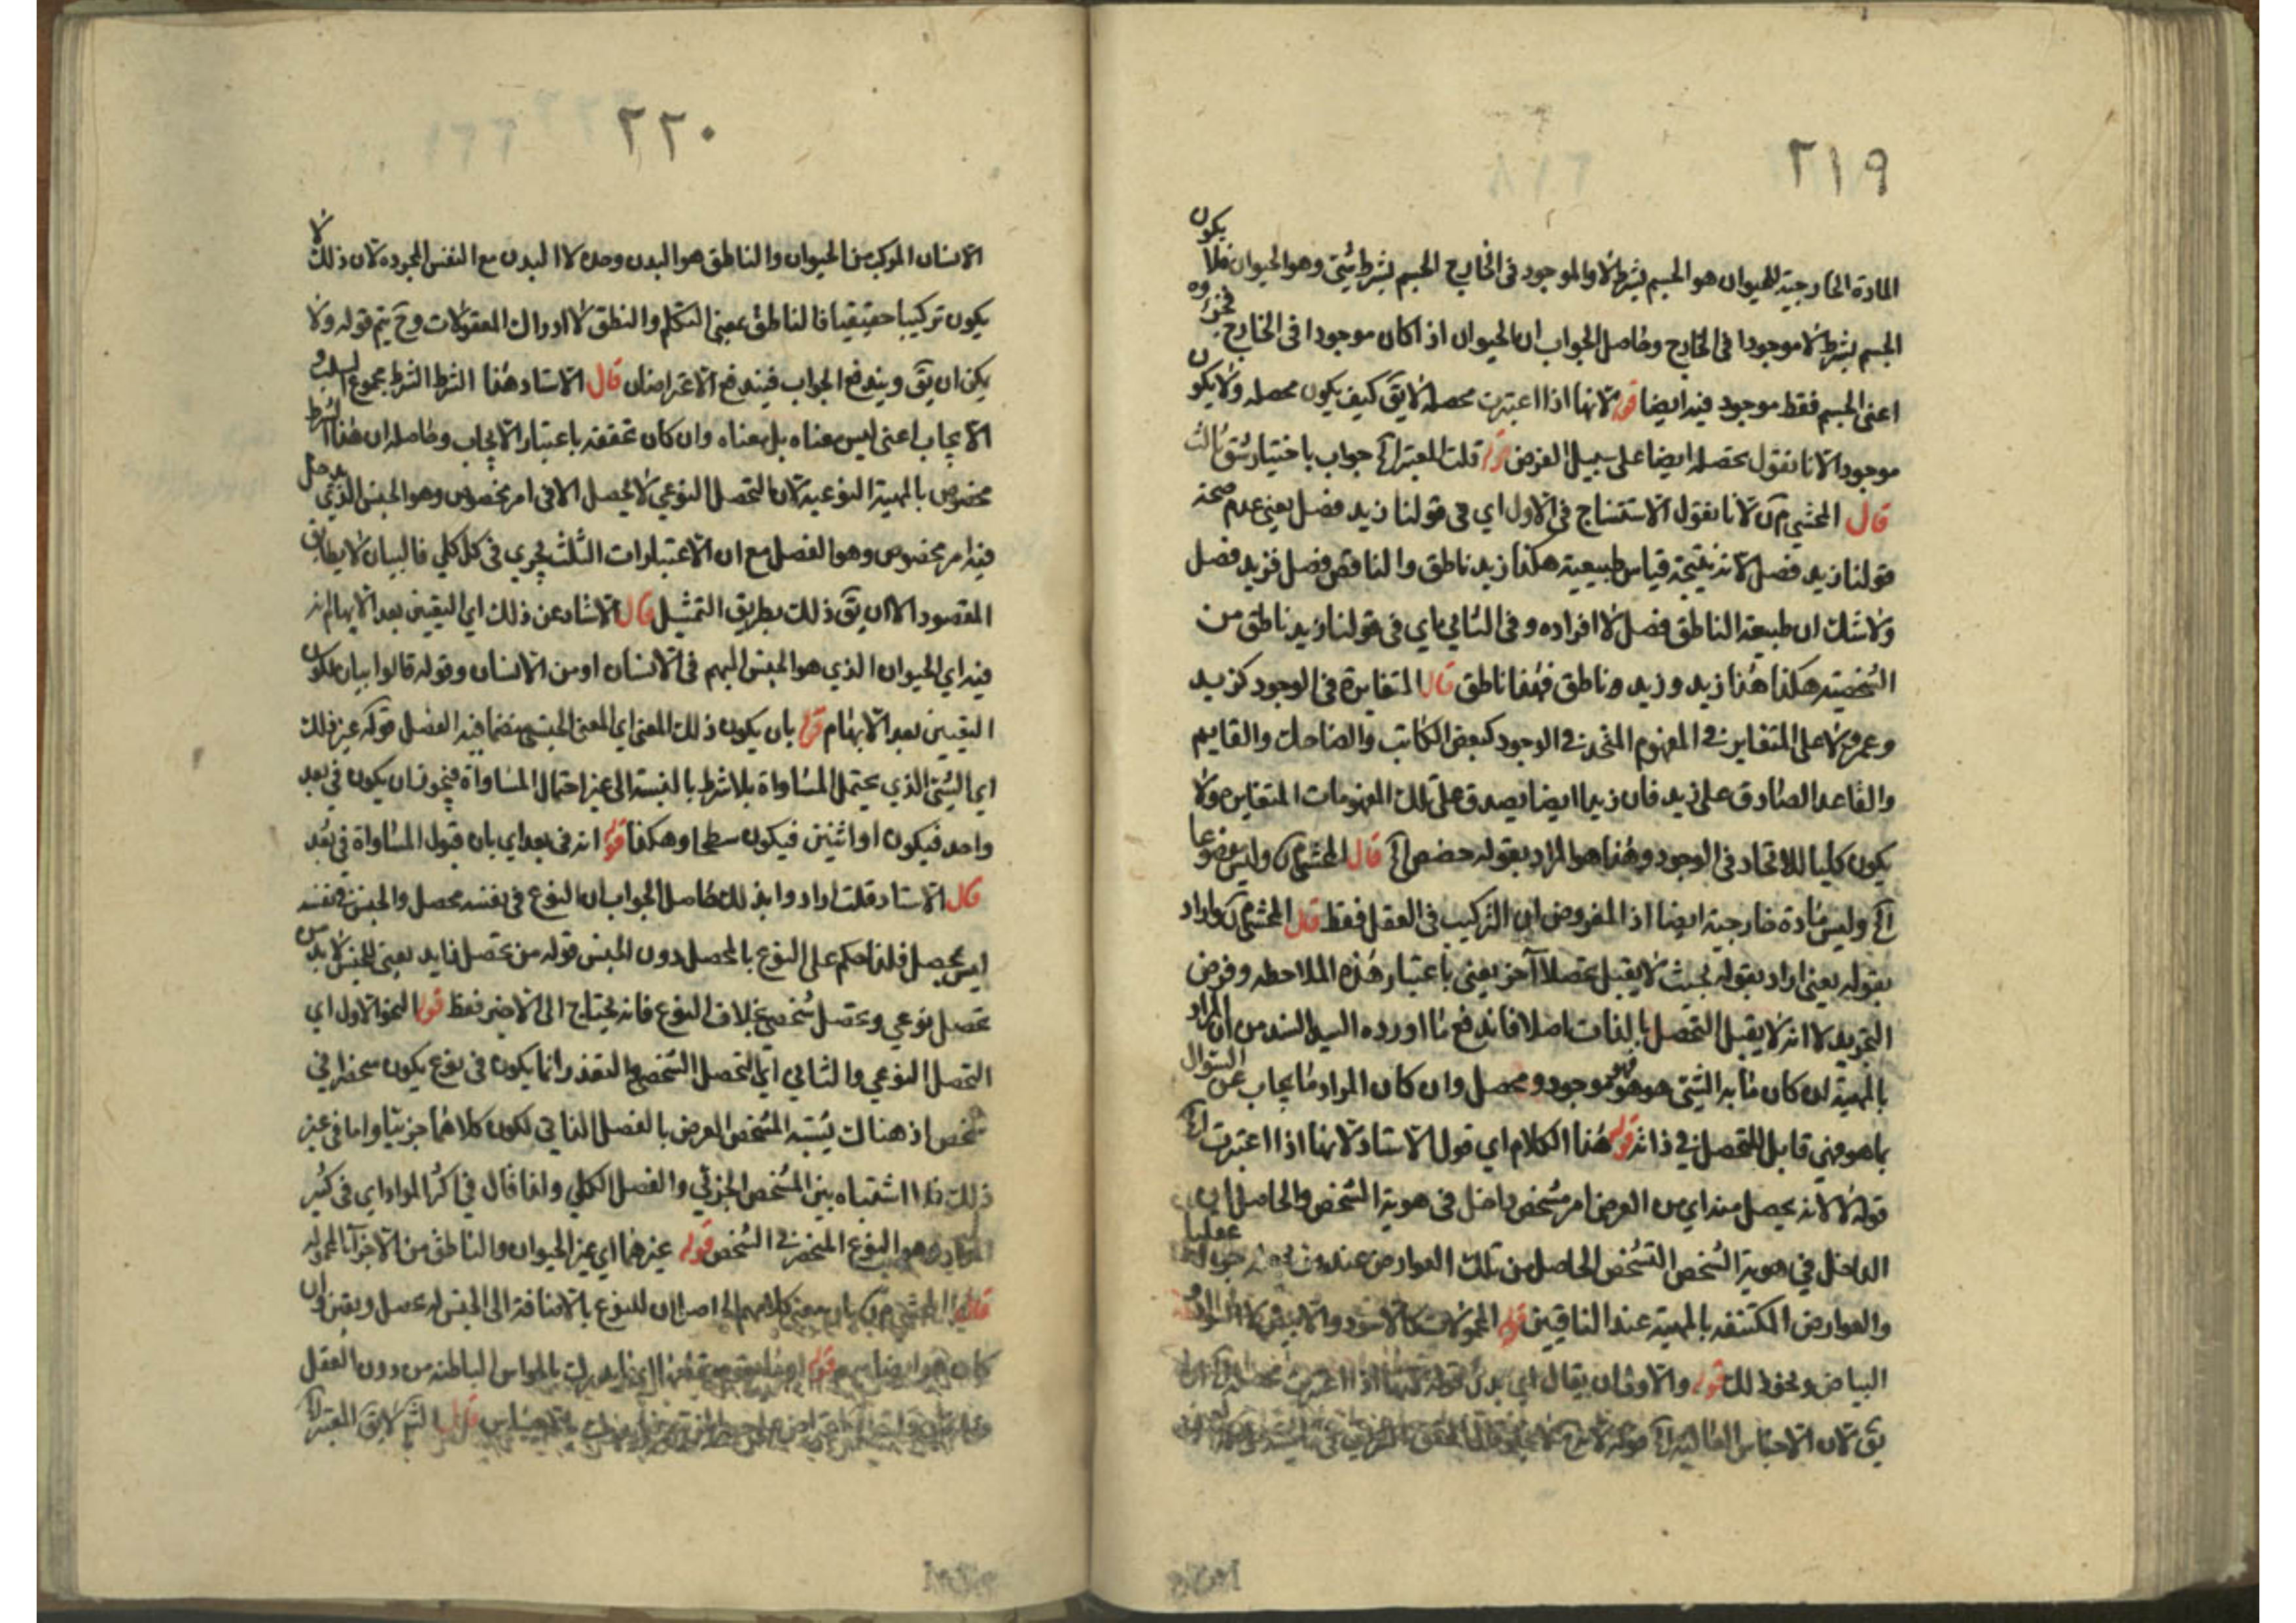 ٢١٩
المادة الخارجية للحيوان هو الجسم بشرط لا والموجود في الخارج الجسم بشرط شيئ وهو الحيوان فلا يكون
الجسم بشرط لا موجودا في الخارج وحاصل الجواب ان الحيوان اذا كان موجودا في الخارج فجزؤه
اعني الجسم فقط موجود فيه ايضا قوله لانها اذا اعتبرت محصله لا يق كيف يكون محصله ولا يكون
موجودا لانا نقول تحصله ايضا على سبيل الفرض قوله قلت المعتبر آه جواب باختيار شق ثالث
قال المحشي م ن لانا نقول الاستنتاج في الاول اي في قولنا زيد فصل يعني عدم صحة
قولنا زيد فصل لانه نتيجة قياس طبيعية هكذا زيد ناطق والناطق فصل فزيد فصل
ولا شك ان طبيعة الناطق فصل لا افراده وفي الثاني اي في قولنا زيد ناطق من
الشخصية هكذا هذا زيد وزيد ناطق فهذا ناطق قال المتغايرة في الوجود كزيد
وعمرو لا على المتغاير في المفهوم المتحد في الوجود كبعض الكاتب والضاحك والقايم
والقاعد الصادق على زيد فان زيدا ايضا يصدق على تلك المفهومات المتغايره ولا
يكون كليا للاتحاد في الوجود وهذا هو المراد بقوله حصص آه قال المحشي م ن وليس موضوعا
آه وليس مادة خارجية ايضا اذ المفروض ان التركيب في العقل فقط قال المحشي م ن واراد
بقوله يعني اراد بقوله بحيث لا يقبل تحصلا آخر يعني باعتبار هذه الملاحظه وفرض
التجريد لا انه لا يقبل التحصل بالذات اصلا فاندفع ما اورده السيد السند من ان المراد
بالمهية ان كان ما به الشيئ هو هو فهو موجود ومحصل وان كان المراد ما يجاب عن السؤال
بما هو فهي قابل للتحصل في ذاته قوله هذا الكلام اي قول الاستاد لانها اذا اعتبرت آه
قوله لا لانه يحصل منه اي من العرض امر مشخص داخل في هوية الشخص والحاصل ان
الداخل في هوية الشخص التشخص الحاصل من تلك العوارض عند
والعوارض المكتنفه بالمهية عند الباقين قوله المحمولات كالاسود والابيض لا السواد
البياض ونحو ذلك قوله والاولى ان يقال اي بدل قوله
يق لان الاجناس العالية آه قوله
٢٢٠
الانسان المركب من الحيوان والناطق هو البدن وحده لا البدن مع النفس المجرده لان ذلك لا
يكون تركيبا حقيقيا فالناطق بمعنى التكلم والنطق لا ادراك المعقولات وح يتم قوله ولا
يكن ان يق ويندفع الجواب فيندفع الاعتراضان قال الاستاد هذا الشرط الشرط مجموع السلب و
الايجاب اعني ليس معناه بل معناه وان كان تحققه باعتبار الايجاب وحاصله ان هذا الشرط
مخصوص بالمهية النوعية لان التحصل النوعي لا يحصل الا في امر مخصوص وهو الجنس الذي يدخل
فيه امر مخصوص وهو الفصل مع ان الاعتبارات الثلث يجري في كل كلي فالبيان لا يطابق
المقصود الا ان يق ذلك بطريق التمثيل قال الاستاد عن ذلك اي اليقين بعد الابهام انه
فيه اي الحيوان الذي هو الجنس المبهم في الانسان او من الانسان وقوله قالوا بيان لكون
اليقين بعد الابهام قوله بان يكون ذلك المعنى اي المعنى الجنسي منضما فيه الفصل قوله غير ذلك
اي الشيئ الذي يحتمل المساواة بلا شرط بالنسبة الى غير احتمال المساواة فيجوز ان يكون في بعد
واحد فيكون او اثنين فيكون سطحا وهكذا قوله انه في بعد اي بان قبول المساواة في بعد
قال الاستاد قلت اراد وا بذلك حاصل الجواب ان النوع في نفسه محصل والجنس في نفسه
ليس بمحصل فلذا حكم على النوع بالمحصل دون الجنس قوله من تحصل زايد يعني للجنس لا بد من
تحصل نوعي وتحصل شخصي بخلاف النوع فانه يحتاج الى الاخير فقط قوله النحو الاول اي
التحصل النوعي والثاني اي التحصل الشخصي والتعذر انما يكون في نوع يكون منحصرا في
شخص اذ هناك يشتبه المشخص العرض بالفصل الذاتي لكون كلاهما جزئيا واما في غير
ذلك فلا اشتباه بين المشخص الجزئي والفصل الكلي ولذا قال في اكثر المواد اي في كثير
المواد وهو النوع المنحصر في الشخص قوله غيرهما اي غير الحيوان والناطق من الاجزاء المحموله
قال المحشي م ن بان معنى كلامهم الحاصل ان للنوع بالاضافة الى الجنس له تحصل ويقين وان
كان هو ايضا قوله بالحواس الباطنه من دون العقل
قال ثم لا يق المعتبر آه